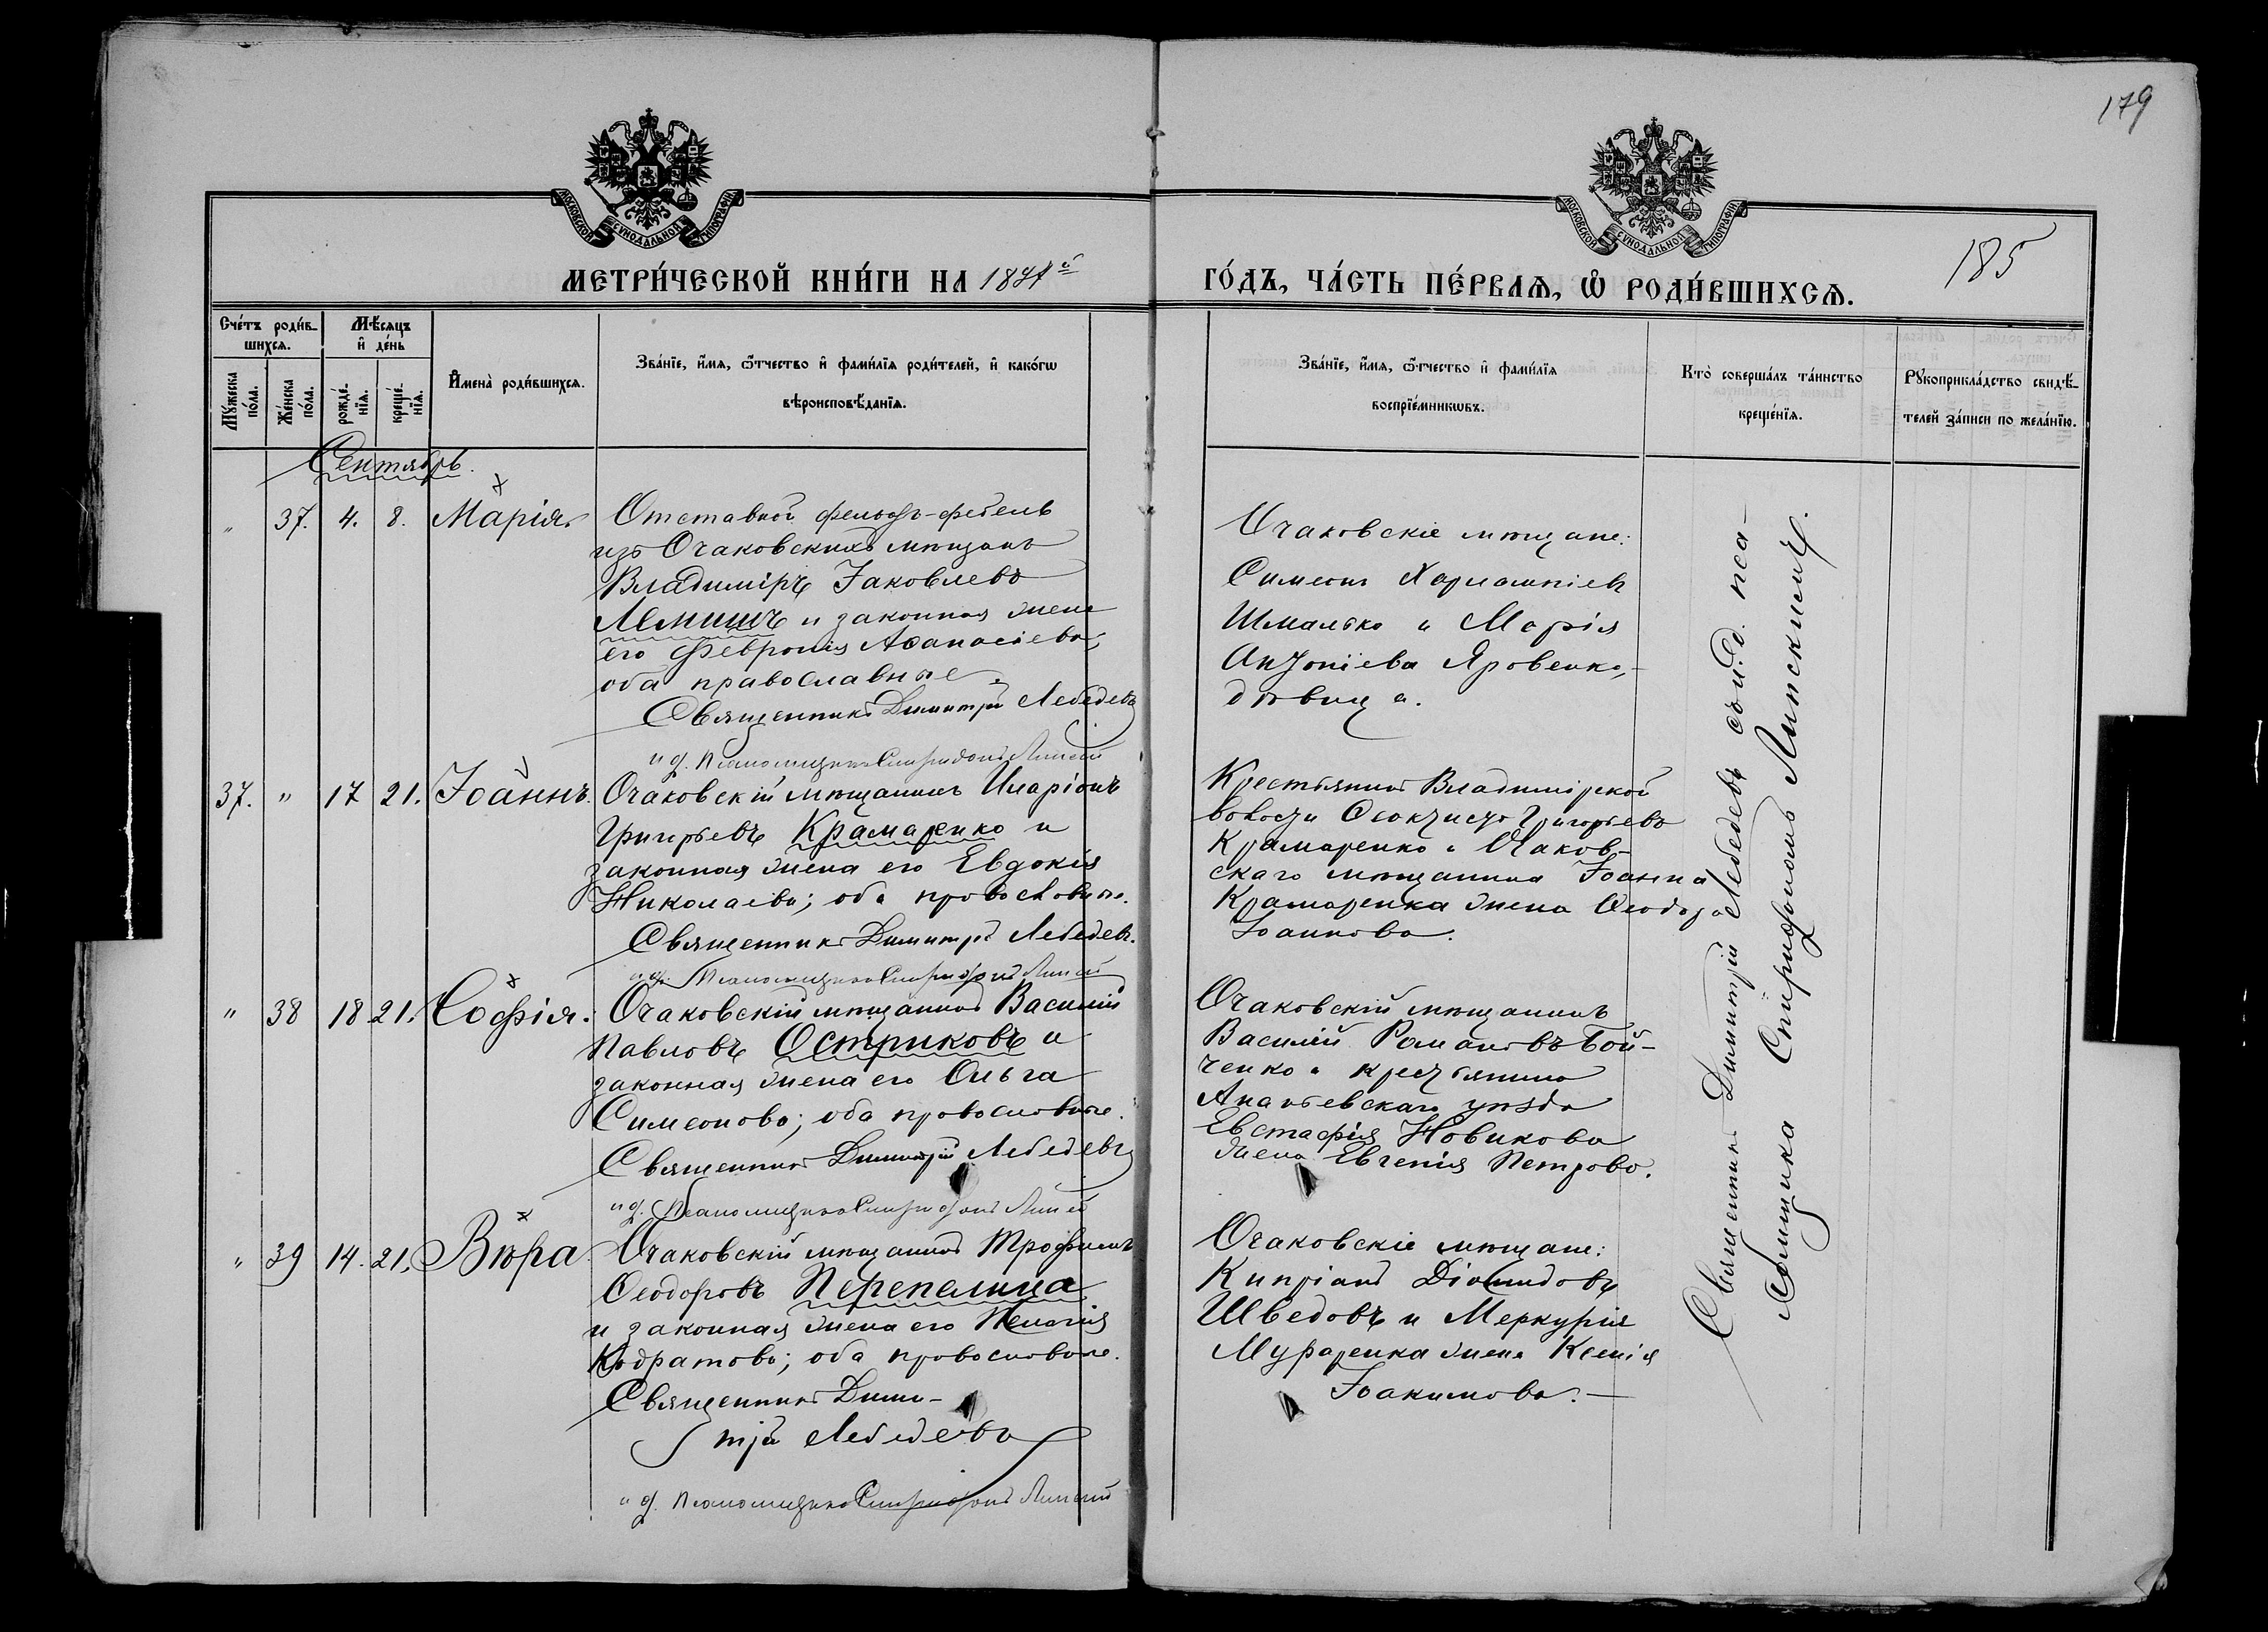 179
МОСКОВСКОЙ СУНОДАЛЬНОЙ ТИПОГРАФІИ
МОСКОВСКОЙ СУНОДАЛЬНОЙ ТИПОГРАФІИ
185
МЕТРИ́ЧЕСКОЙ КНИ́ГИ НА
ГО́ДЪ, ЧА́СТЬ ПЕ́РВАѦ, Ѡ҆ РОДИ́ВШИХСѦ.
Сче́тъ роди́в-
шихсѧ.
Мꙋ́жеска по́ла.
Же́нска по́ла.
Мѣ́сѧцъ
и҆ де́нь
рожде́-нїѧ.
креще́-нїѧ.
И҆мена̀ роди́вшихсѧ.
Зва́нїе, и҆́мѧ, ѻ҆́тчество и҆ фами́лїѧ роди́телей, и҆ како́гѡ
вѣроисповѣ́данїѧ.
Зва́нїе, и҆́мѧ, ѻ҆́тчество и҆ фами́лїѧ
воспрїе́мникѡвъ.
Кто̀ соверша́лъ та́инство
креще́нїѧ.
Рꙋкоприкла́дство свидѣ́-
телей за́писи по жела́нїю.
Сентябрь.
" 37. 4. 8. Марія.
Отставной фельдъ-фебель
изъ Очаковскихъ мѣщанъ
Владиміръ Іаковлевъ
Лемишъ и законная жена
его Февронія Аѳанасіева,
оба православные.
Священникъ Димитрій Лебедевъ
и д. Псаломщика Спиридонъ Липскій
Очаковскіе мѣщане:
Симеонъ Харлампіевъ
Шмалько и Марія
Антоніева Яровенко,
дѣвица.
37. " 17 21. Іоаннъ.
Очаковскій мѣщанинъ Иларіонъ
Григорьевъ Крамаренко и
законная жена его Евдокія
Николаева; оба православные.
Священникъ Димитрій Лебедевъ.
и д. Псаломщика Спиридонъ Липскій
Крестьянинъ Владимірской
волости Ѳеоктистъ Григорьевъ
Крамаренко и Очаков-
скаго мѣщанина Іоанна
Крамаренка жена Ѳеодора
Іоаннова.
" 38 18 21. Софія.
Очаковскій мѣщанинъ Василій
Павловъ Остриковъ и
законная жена его Ольга
Симеонова; оба православные.
Священникъ Димитрій Лебедевъ
и д. Псаломщика Спиридонъ Липскій
Очаковскій мѣщанинъ
Василій Романовъ Бой-
ченко и крестьянина
Ананьевскаго уѣзда
Евстафія Новикова
жена Евгенія Петрова.
" 39 14. 21. Вѣра
Очаковскій мѣщанинъ Трофимъ
Ѳеодоровъ Перепелица
и законная жена его Пелагія
Кодратова; оба православные.
Священникъ Дими-
трій Лебедевъ
и д. Псаломщика Спиридонъ Липскій
Очаковскіе мѣщане:
Кипріанъ Діомидовъ
Шведовъ и Меркурія
Мураренка жена Ксенія
Іоакимова.
Священникъ Димитрій Лебедевъ съ и. д. пса-
ломщика Спиридономъ Липскимъ.